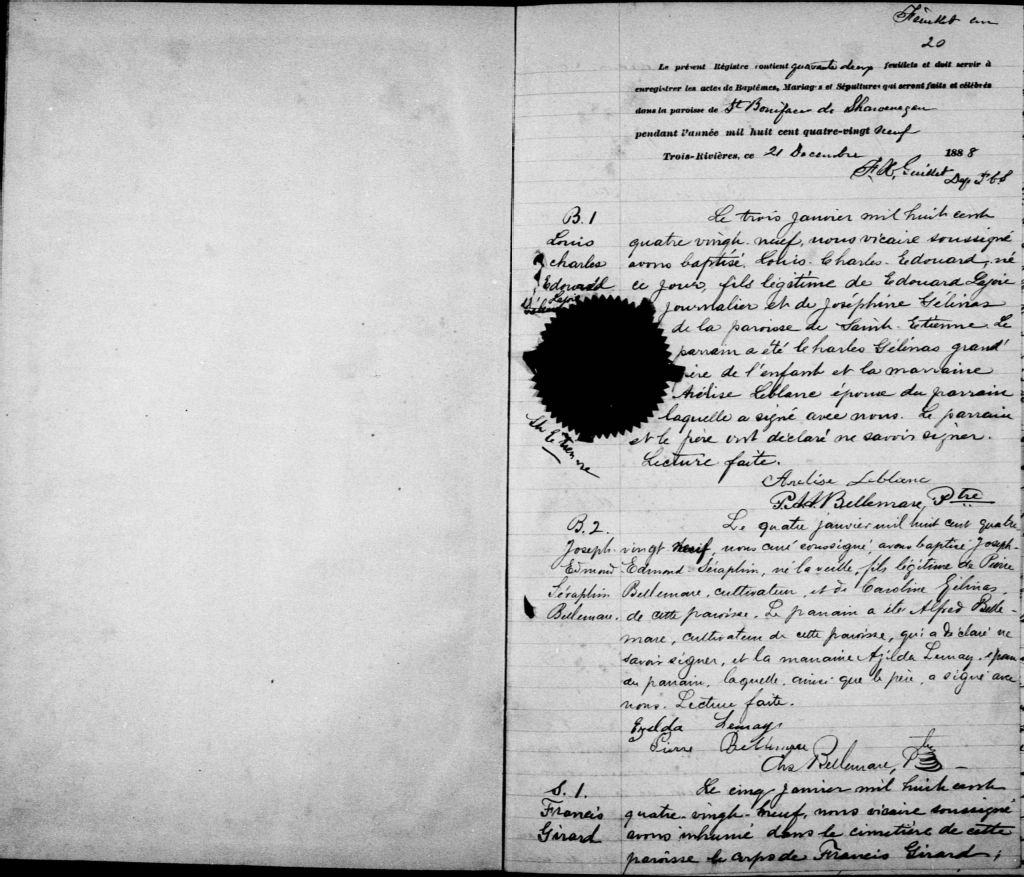 Feuillet un
20
Le présent Régistre contient quarante deux feuillets et doit servir à
enregistrer les actes de Baptêmes, Mariages et Sépultures qui seront faits et célébrés
dans la paroisse de St Boniface de Shawenegan
pendant l'année mil huit cent quatre-vingt neuf
Trois-Rivières, ce 21 Decembre 1888
F. X. Guillet
Dep P.C.S
B. 1
Louis
charles
Edouard
Lajoie
St Etienne
Le trois janvier mil huit cent
quatre vingt-neuf, nous vicaire soussigné
avons baptisé Louis-Charles-Edouard, né
ce jour, fils légitime de Edouard Lajoie
journalier et de Joséphine Gélinas
de la paroisse de Saint-Etienne. Le
parrain a été Charles Gélinas grand'
père de l'enfant et la marraine
Arélise Leblanc épouse du parrain
laquelle a signé avec nous. Le parrain
et le père ont déclaré ne savoir signer.
Lecture faite.
Arelise Leblanc
P. A. A. Bellemare, Ptre
B. 2.
Joseph-
Edmond
Séraphin
Bellemare.
Le quatre janvier mil huit cent quatre
vingt neuf, nous curé soussigné, avons baptisé Joseph-
Edmond Séraphin, né la veille, fils légitime de Pierre
Bellemare, cultivateur, et de Caroline Gélinas,
de cette paroisse. Le parrain a été Alfred Belle-
mare, cultivateur de cette paroisse, qui a déclaré ne
savoir signer, et la marraine Azilda Lemay, épouse
du parrain, laquelle, ainsi que le père, a signé avec
nous. Lecture faite.
Ezelda Lemay
Pierre Bellemare
Chs Bellemare, Ptre
S. 1.
Francis
Girard
Le cinq janvier mil huit cent
quatre-vingt-neuf, nous vicaire soussigné
avons inhumé dans le cimetière de cette
paroisse le corps de Francis Girard,